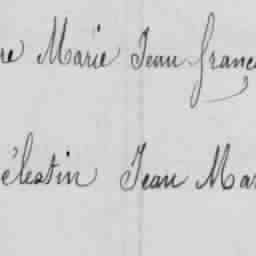 re Marie Jean franç
élestin Jean Mar